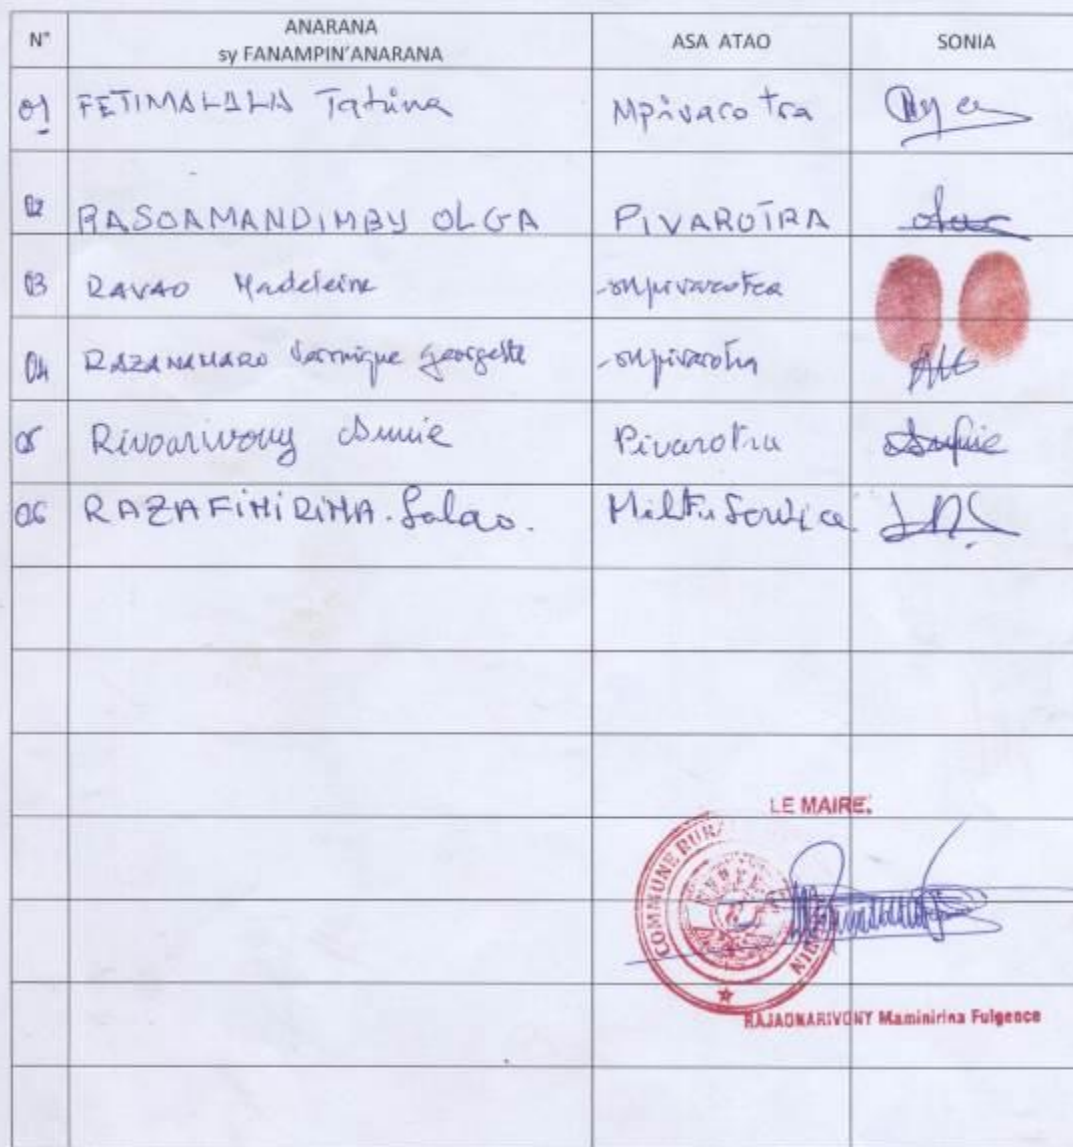 N° ANARANA sy FANAMPIN'ANARANA ASA ATAO SONIA
01 FETIMALALA Tatina Mpivarotra
02 RASOAMANDIMBY OLGA PIVAROTRA
03 RAVAO Madeleine mpivarotra
04 RAZANAMARO Georgette mpivarotra
05 Rivoarivony Pivarotra
06 RAZAFIMIRINA. Solao. Multi Service
LE MAIRE.
COMMUNE RURA
RAJAONARIVONY Maminirina Fulgence